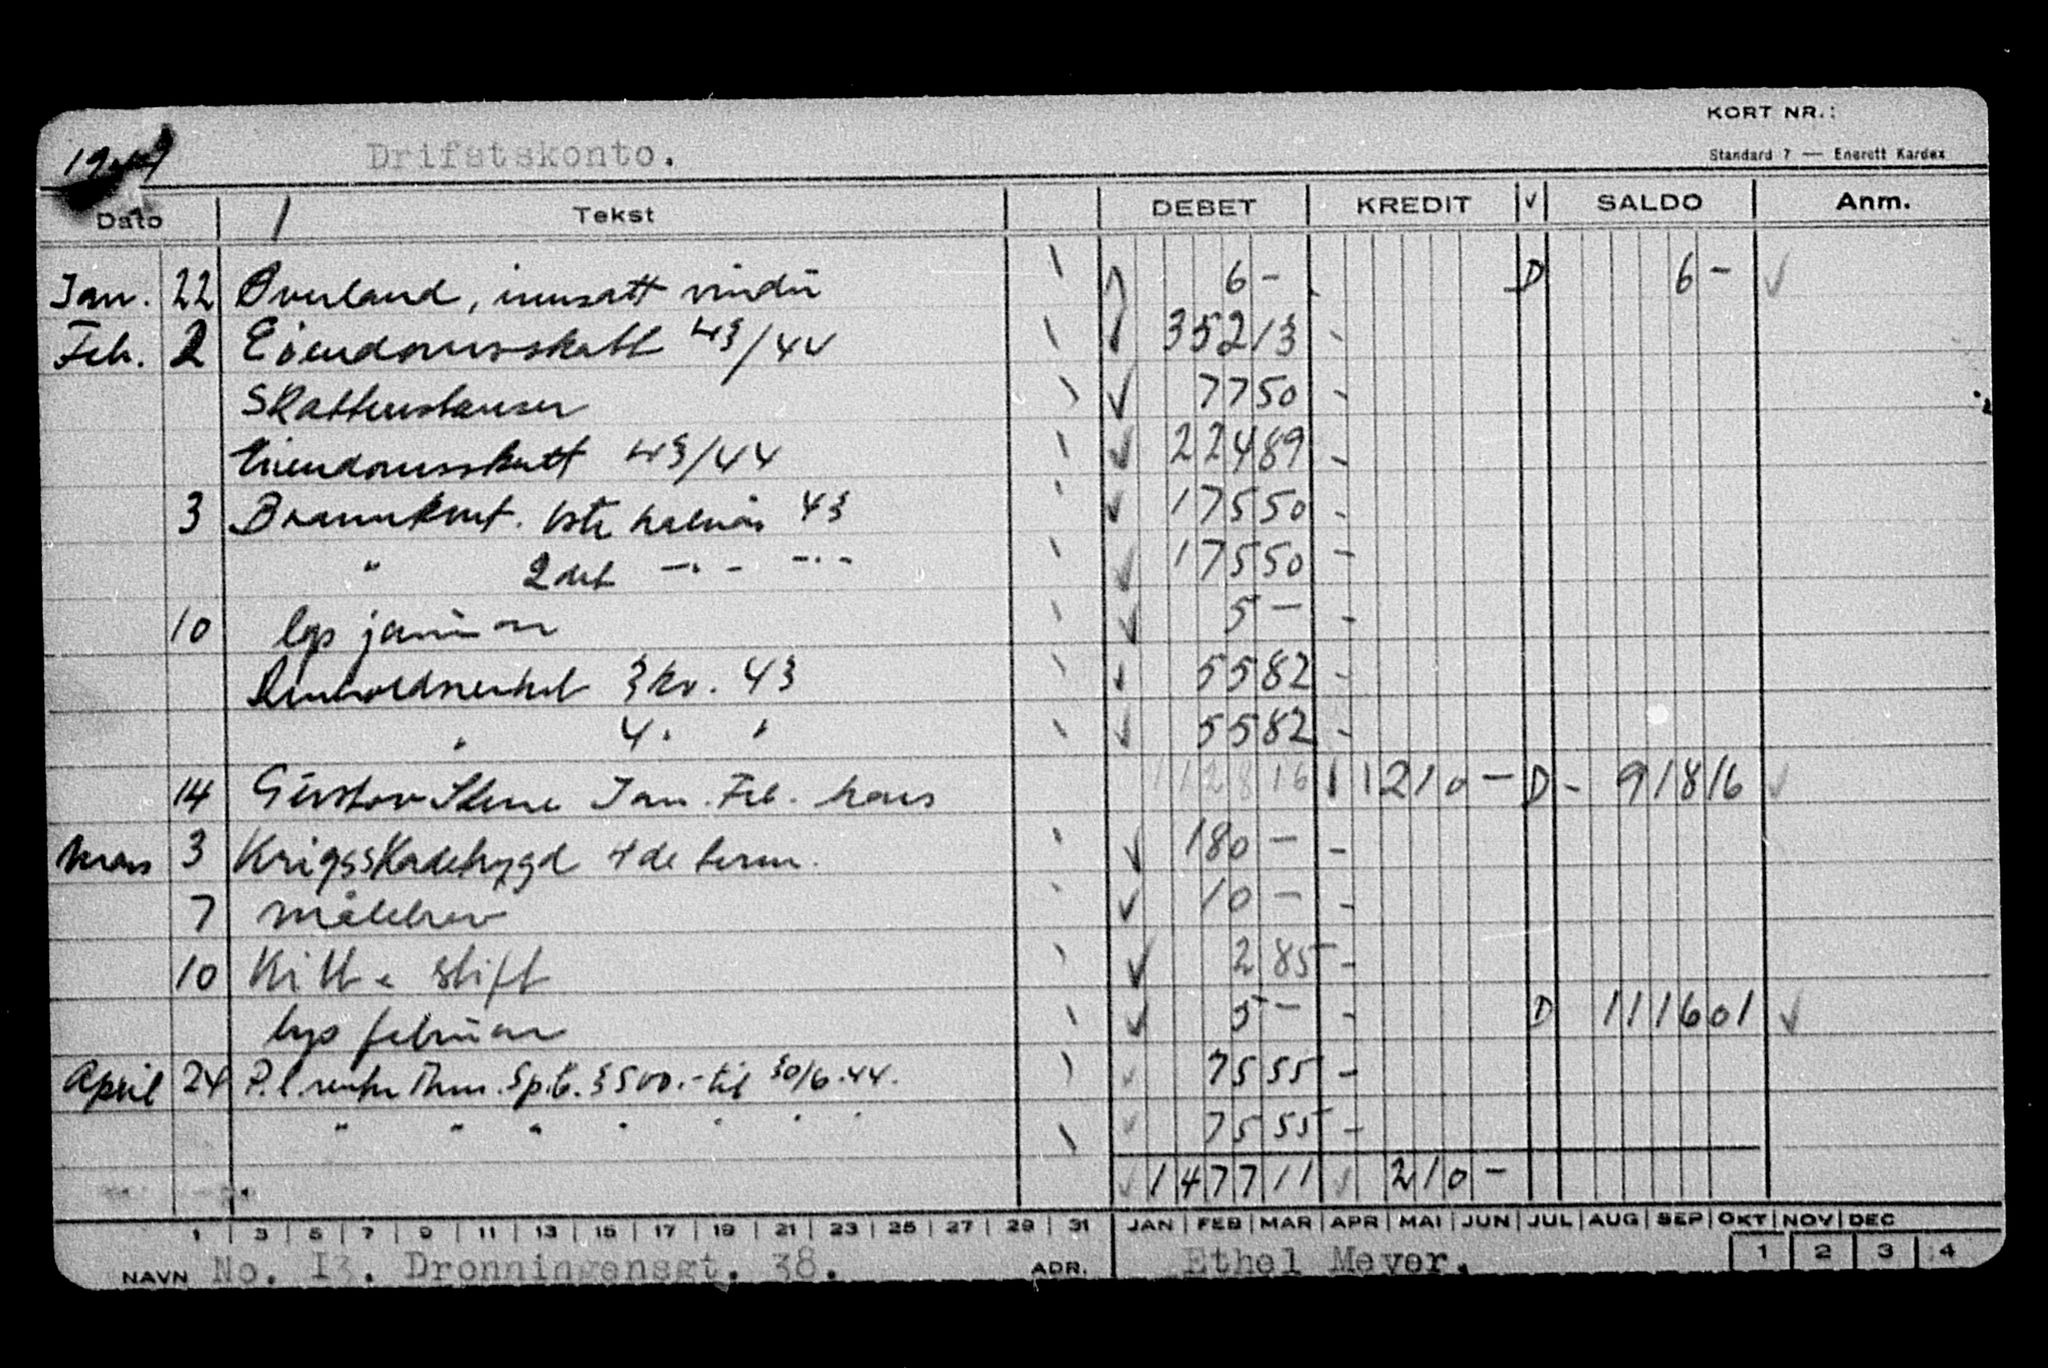 KORT NR.:
1944 Drifstskonto. Standard 7 — Enerett Kardex
Dato Tekst DEBET KREDIT √ SALDO Anm.
Jan. 22 Øverland, innsatt vindu 6 - D 6 -
Feb. 2 Eiendomsskatt 43/44 352 13 -
77 50 -
Eiendomsskatt 43/44 224 89 -
3 Brannkont. 1ste halvår 43 175 50 -
" 2det -"- -"- 175 50 -
10 lys januar 5 - -
Renholdsverket 3 kv. 43 55 82 -
" 4 " " 55 82 -
14 Gustav Jan. Feb. 1128 16 210 - D - 918 16
Mars 3 Krigsskadetrygd 4de term. 180 - -
7 målebrev 10 - -
10 Kitt & stift 2 85 -
lys februar 5 - - D 1116 01
April 24 P. l. renter Thm. Sp.b. 3500.- til 30/6.44. 75 55 -
" " " " " " " 75 55 -
1477 11 210 -
1 3 5 7 9 11 13 15 17 19 21 23 25 27 29 31 JAN FEB MAR APR MAI JUN JUL AUG SEP OKT NOV DEC
NAVN No. I3. Dronningensgt. 38. ADR. Ethel Meyer. 1 2 3 4